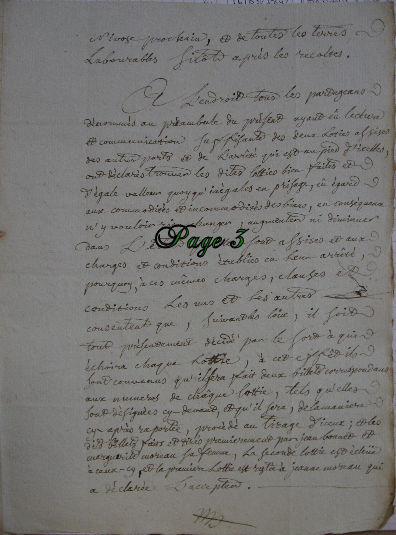 Nivose prochain, et de toutes les terres
Labourables sitôt après les recoltes.
A L'endroit tous les partageans
dénommés au préambule du présent ayant eû lecture
et communication suffisante des deux Lotties assises
des autres parts et de L'arrêté qui est au pied d'icelles,
ont déclarés trouver les dites lotties bien faites et
d'égale valleur quoyque inégales en prisage, eu égard
aux commodités et incommodités des biens, en conséquence
n'y vouloir changer, augmenter ni diminuer
dans L'é sont assises et aux
charges et conditions établies en leur arrêté,
pourquoy, à ces mêmes charges, clauses et
conditions Les uns et Les autres
consentent que, suivant les loix, il soit
tout présentement décidé par le sort à qui
échoira chaque Lottie, à cet effet ils
sont convenus qu'il sera fait deux billets correspondans
aux numeros de chaque lottie, tels qu'elles
sont désignées cy-devant, et qu'il sera, de la manière
cy-après raportée, procédé au tirage d'iceux, et les
dits billets faits et tirés premierement par jean
marguerite moreau sa femme, La seconde lottie est échue
à ceux-cy, et la premiere Lottie est restée à jeanne moreau qui
a déclarée L'accepter.
Page 3